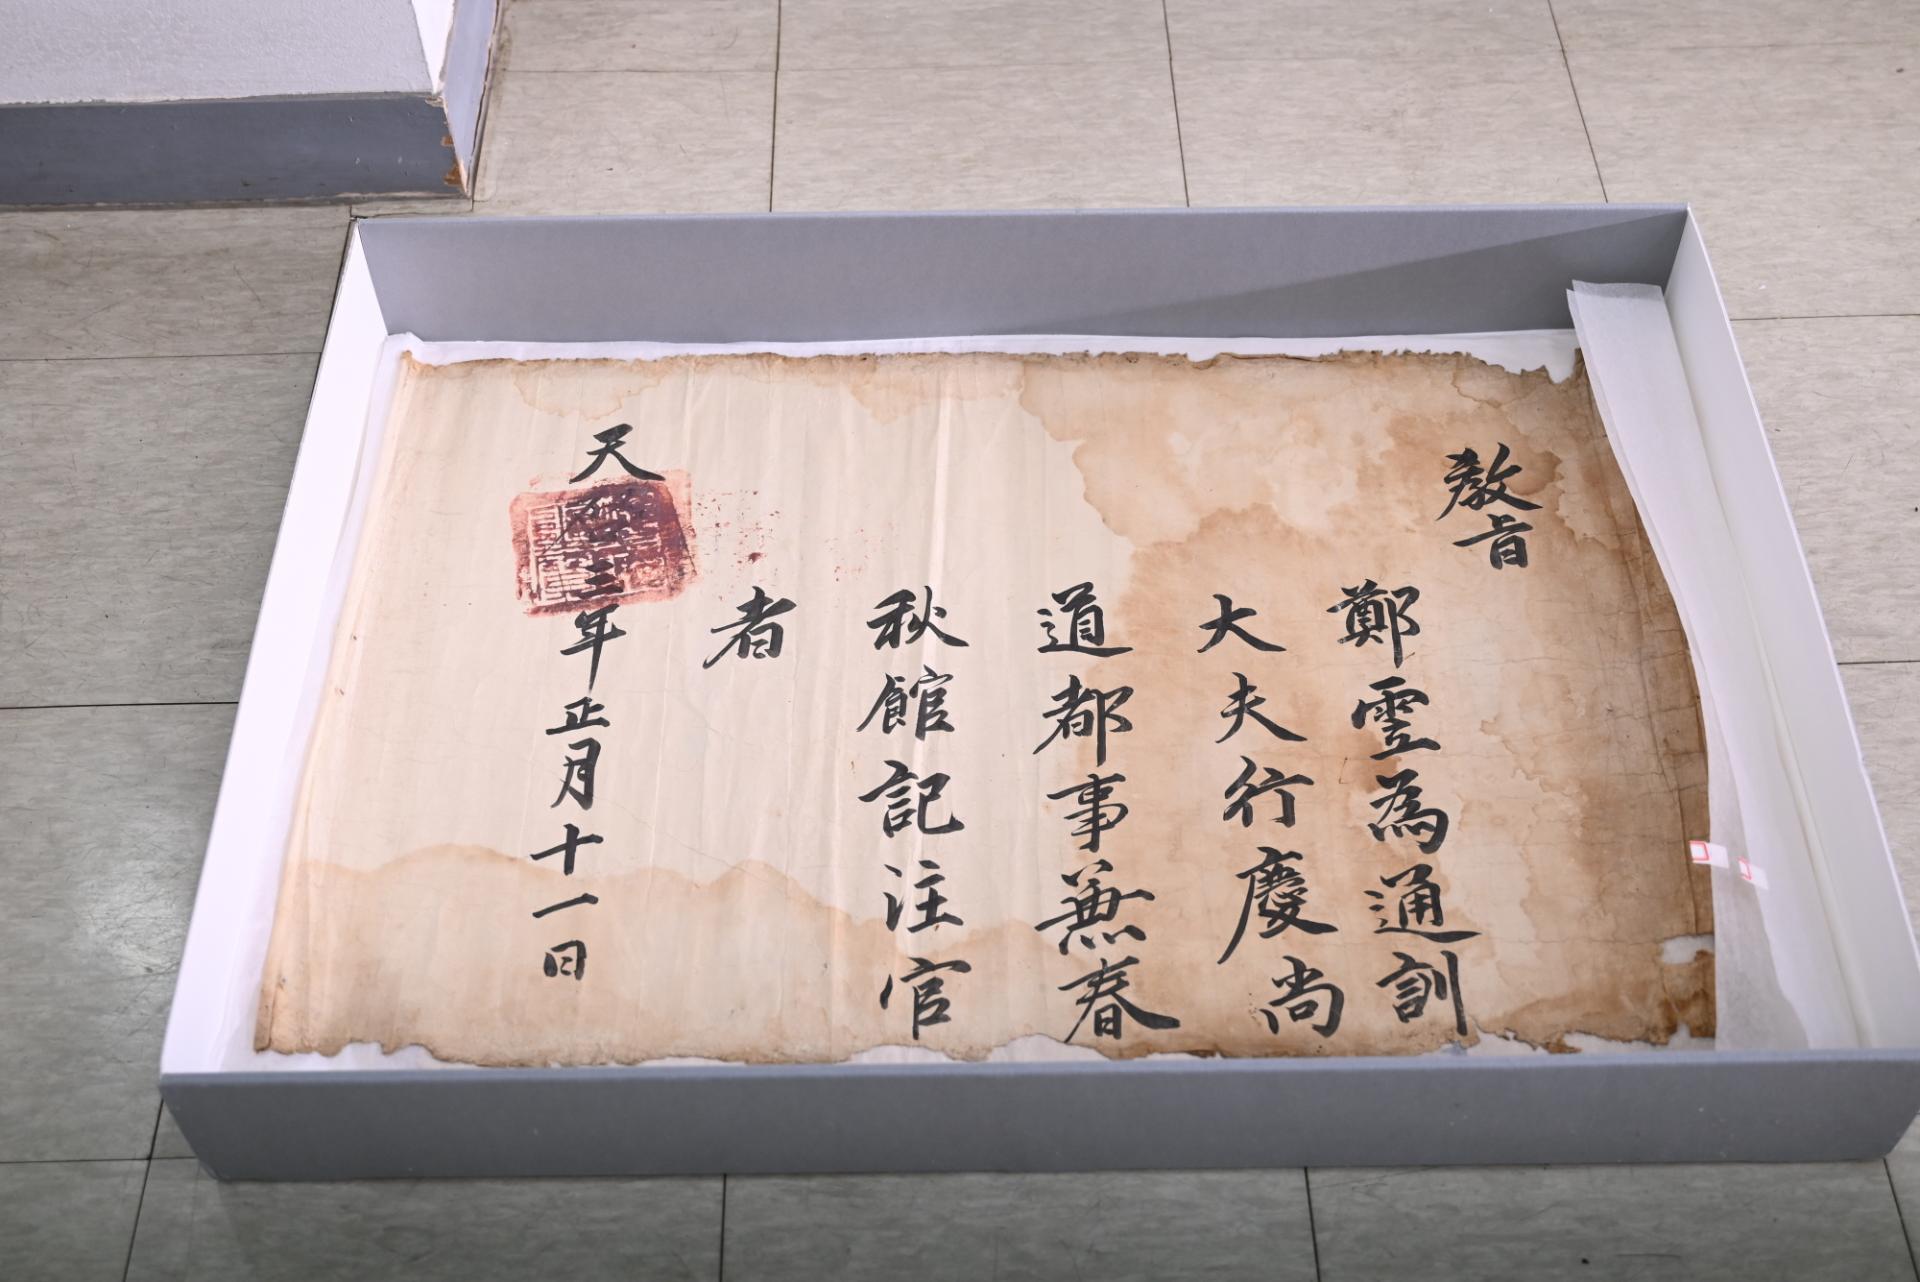 教旨
鄭為通訓
大夫行慶尚
道都事兼春
秋館記注官
者
天三年正月十一日